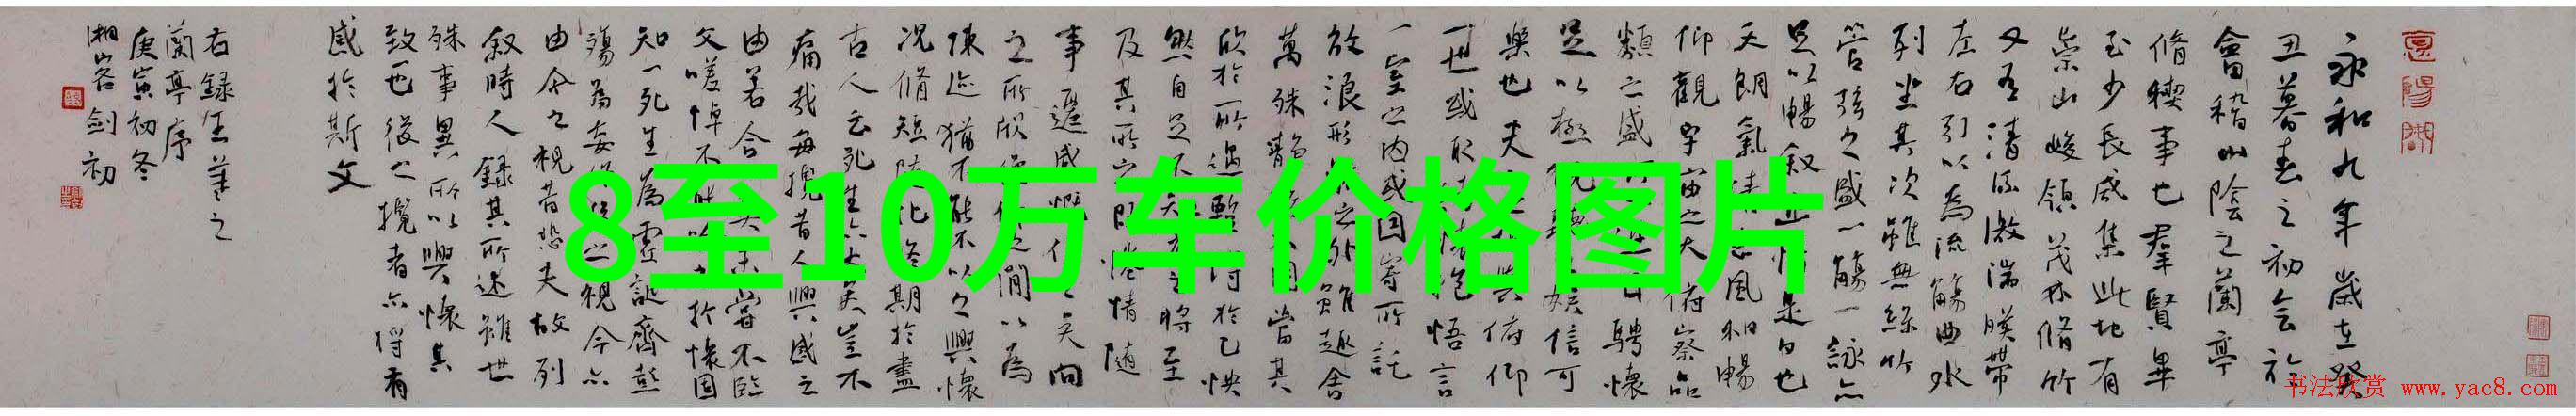 8至10万车价格图片
永和九年歲在癸
丑暮春之初会於
會稽山陰之蘭亭
脩稧事也羣賢畢
至少長咸集此地有
崇山峻領茂林脩竹
又有清流激湍暎帶
左右引以為流觴曲水
列坐其次雖無絲竹
管弦之盛一觴一詠亦
足以暢叙幽情是日也
天朗氣清惠風和暢
仰觀宇宙之大俯察品
類之盛所以遊目騁懷
足以極視聽之娱信可
樂也夫人之相與俯仰
一世或取諸懷抱悟言
一室之内或因寄所託
放浪形骸之外雖趣舍
萬殊靜躁不同當其
欣於所遇暫得於己怏
然自足不知老之將至
及其所之既惓情随
事遷感慨係之矣向
之所欣俛仰之間以為
陳迹猶不能不以之興懷
况脩短随化終期於盡
古人云死生亦大矣豈不
痛哉每攬昔人興感之
由若合一契未嘗不臨
文嗟悼不能喻之於懷固
知一死生為虚誕齊彭
殤為妄作後之視今亦
由今之視昔悲夫故列
叙時人録其所述雖世
殊事異所以興懷其
致一也後之攬者亦將有
感於斯文
右録王羲之
蘭亭序
庚寅初冬
湘客劍初
书法欣赏 www.yac8.com